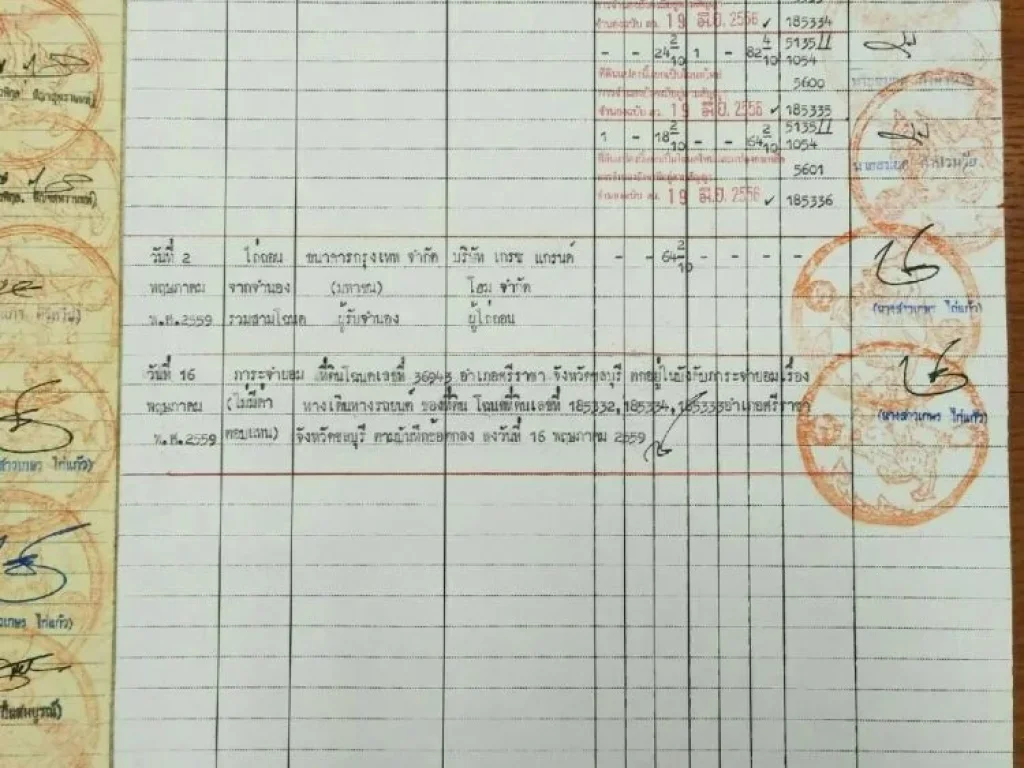 จำนองฉบับ ลว. 19 มิ.ย. 2556 ✓ 185334
- - 24 2/10 1 - 82 4/10 5135 II
1054
5600
จำนองฉบับ ลว. 19 มิ.ย. 2556 ✓ 185335
1 - 18 2/10 - - 64 2/10 5135 II
1054
5601
จำนองฉบับ ลว. 19 มิ.ย. 2556 ✓ 185336
วันที่ 2 ไถ่ถอน ธนาคารกรุงเทพ จำกัด บริษัท เกรซ แกรนด์ - - 64 2/10 - - - -
พฤษภาคม จากจำนอง (มหาชน) โฮม จำกัด
พ.ศ.2559 รวมสามโฉนด ผู้รับจำนอง ผู้ไถ่ถอน
(นางสาวเกษร ไก่แก้ว)
วันที่ 16 ภาระจำยอม ที่ดินโฉนดเลขที่ 36943 อำเภอศรีราชา จังหวัดชลบุรี ตกอยู่ในบังคับภาระจำยอมเรื่อง
พฤษภาคม (ไม่มีค่า ทางเดินทางรถยนต์ ของที่ดิน โฉนดที่ดินเลขที่ 185332,185334,185333อำเภอศรีราชา
พ.ศ.2559 ตอบแทน) จังหวัดชลบุรี ตามบันทึกข้อตกลง ลงวันที่ 16 พฤษภาคม 2559
(นางสาวเกษร ไก่แก้ว)
ไก่แก้ว)
ไก่แก้ว)